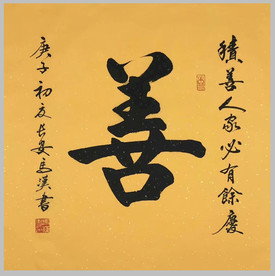 善
積善人家必有餘慶
庚子初夏長安馬漢書